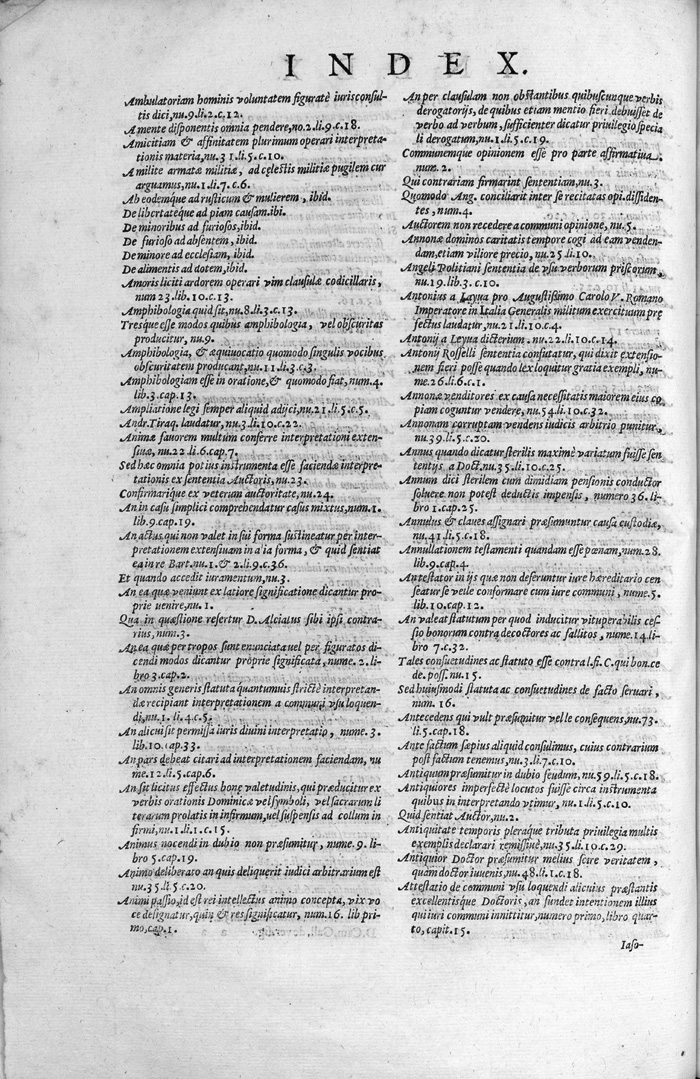 INDEX.
Ambulatoriam hominis voluntatem figuratè iurisconsul-
tis dici, nu.9.li.2.c,12.
A mente disponentis omnia pendere, no.2.li.9.c.18.
Amicitiam & affinitatem plurimum operari interpreta-
tionis materia, nu.31.li.5.c.10.
A milite armatæ militiæ, ad cęlestis militiæ pugilem cur
arguamus, nu.1.li.7.c.6.
Ab eodemque ad rusticum & mulierem, ibid.
De libertateque ad piam causam. ibi.
De minoribus ad furiosos, ibid.
De furioso ad absentem, ibid.
De minore ad ecclesiam, ibid.
De alimentis ad dotem, ibid.
Amoris liciti ardorem operari vim clausulæ codicillaris,
num 23.lib.10.c.13.
Amphibologia quid sit, nu.8.li.3.c.13.
Tresque esse modos quibus amphibologia, vel obscuritas
producitur, nu.9.
Amphibologia, & æquiuocatio quomodo singulis vocibus
obscuritatem producant, nu.11.li.3.c.3.
Amphibologiam esse in oratione, & quomodo fiat, num.4.
lib.3.cap.13.
Ampliatione legi semper aliquid adijci, nu,21.li.5.c.5.
Andr.Tiraq. laudatur, nu.3.li.10.c.22.
Animæ fauorem multum conferre interpretationi exten-
siuæ, nu.22 li.6.cap.7.
Sed hæc omnia potius instrumenta esse faciendæ interpre-
tationis ex sententia Auctoris, nu.23.
Confirmarique ex veterum auctoritate, nu.24.
An in casu simplici comprehendatur casus mixtus, num.1.
lib.9.cap.19.
An actus qui non valet in sui forma sustineatur per inter-
pretationem extensiuam in a'ia forma, & quid sentiat
ea in re Bart.nu.1.& 2.li.9.c.36.
Et quando accedit iuramentum, nu.3.
An ea quæ veniunt ex latiore significatione dicantur pro-
prie uenire, nu.1.
Qua in quæstione refertur D. Alciatus sibi ipsi contra-
rius, num.3.
An ea quæ per tropos sunt enunciata uel per figuratos di-
cendi modos dicantur proprie significata, nume.2.li-
bro 3.cap.2.
An omnis generis statuta quantumuis strictè interpretan-
da recipiant interpretationem a communi vsu loquen-
di, nu.1. li.4.c.5.
An alicui sit permissa iuris diuini interpretatio, nume.3.
lib.10.cap.33.
An pars debeat citari ad interpretationem faciendam, nu
me.12.li.5.cap.6.
An sit licitus effectus bonę valetudinis, qui præducitur ex
verbis orationis Dominicæ vel symboli, vel sacrarum li
terarum prolatis in infirmum, uel suspensis ad collum in
firmi, nu.1.li.1.c.15.
Animus nocendi in dubio non præsumitur, nume.9. li-
bro 5.cap.19.
Animo deliberato an quis deliquerit iudici arbitrarium est
nu.35.li.5.c.20.
Animi passio, id est rei intellectus animo concepta, vix vo
ce designatur, quia & res significatur, num.16. lib pri-
mo, cap.1.
An per clausulam non obstantibus quibuscunque verbis
derogatorijs, de quibus etiam mentio fieri debuisset de
verbo ad verbum, sufficienter dicatur priuilegio specia
li derogatum, nu.1.li.5.c.19.
Communemque opinionem esse pro parte affirmatiua.
num.2.
Qui contrariam firmarint sententiam, nu.3.
Quomodo Ang. conciliarit inter se recitatas opi.dissiden-
tes, num.4.
Auctorem non recedere a communi opinione, nu.5.
Annonæ dominos caritatis tempore cogi ad eam venden-
dam, etiam viliore precio, nu.25 li.10.
Angeli Politiani sententia de vsu verborum priscorum,
nu.19.lib.3.c.10.
Antonius a Leyua pro Augustissimo Carolo V. Romano
Imperatore in Italia Generalis militum exercituum pre
fectus laudatur, nu.21.li.10.c.4.
Antonij a Leyua dicterium. nu.22.li.10.c.14.
Antonij Rosselli sententia confutatur, qui dixit extensio-
nem fieri posse quando lex loquitur gratia exempli, nu-
me.26.li.6.c.1.
Annonæ venditores ex causa necessitatis maiorem eius co
piam coguntur vendere, nu.54.li.10.c.32.
Annonam corruptam vendens iudicis arbitrio punitur,
nu.39.li.5.c.20.
Annus quando dicatur sterilis maximè variatum fuisse sen
tentys a Doct.nu.35.li.10.c.25.
Annum dici sterilem cum dimidiam pensionis conductor
soluere non potest deductis impensis, numero 36.li-
bro 1.cap.25.
Annulus & claues assignari præsumuntur causa custodiæ,
nu.41.li.5.c.18.
Annullationem testamenti quandam esse pœnam, num.28.
lib.9.cap.4.
An testator in ijs quæ non deseruntur iure hæreditario cen
seatur se velle conformare cum iure communi, nume.5.
lib.10.cap.12.
An valeat statutum per quod inducitur vituperabilis ces-
sio bonorum contra decoctores ac fallitos, nume.14.li-
bro 7.c.32.
Tales consuetudines ac statuto esse contra l.fi.C.qui bon.ce
de.poss.nu.15.
Sed huiusmodi statuta ac consuetudines de facto seruari,
num.16.
Antecedens qui vult præsumitur velle consequens, nu.73.
li.5.cap.18.
Ante factum sæpius aliquid consulimus, cuius contrarium
post factum tenemus, nu.3.li.7.c.10.
Antiquum præsumitur in dubio feudum, nu.59.li.5.c.18.
Antiquiores imperfectè locutos fuisse circa instrumenta
quibus in interpretando vtimur, nu.1.li.5.c.10.
Quid sentiat Auctor, nu.2.
Antiquitate temporis pleraque tributa priuilegia multis
exemplis declarari remissiuè, nu.35.li.10.c.29.
Antiquior Doctor præsumitur melius scire veritatem,
quam doctor iuuenis, nu.48.li.1.c.18.
Attestatio de communi vsu loquendi alicuius præstantis
excellentisque Doctoris, an fundet intentionem illius
qui iuri communi innititur, numero primo, libro quar-
to, capit.15.
Iaso-